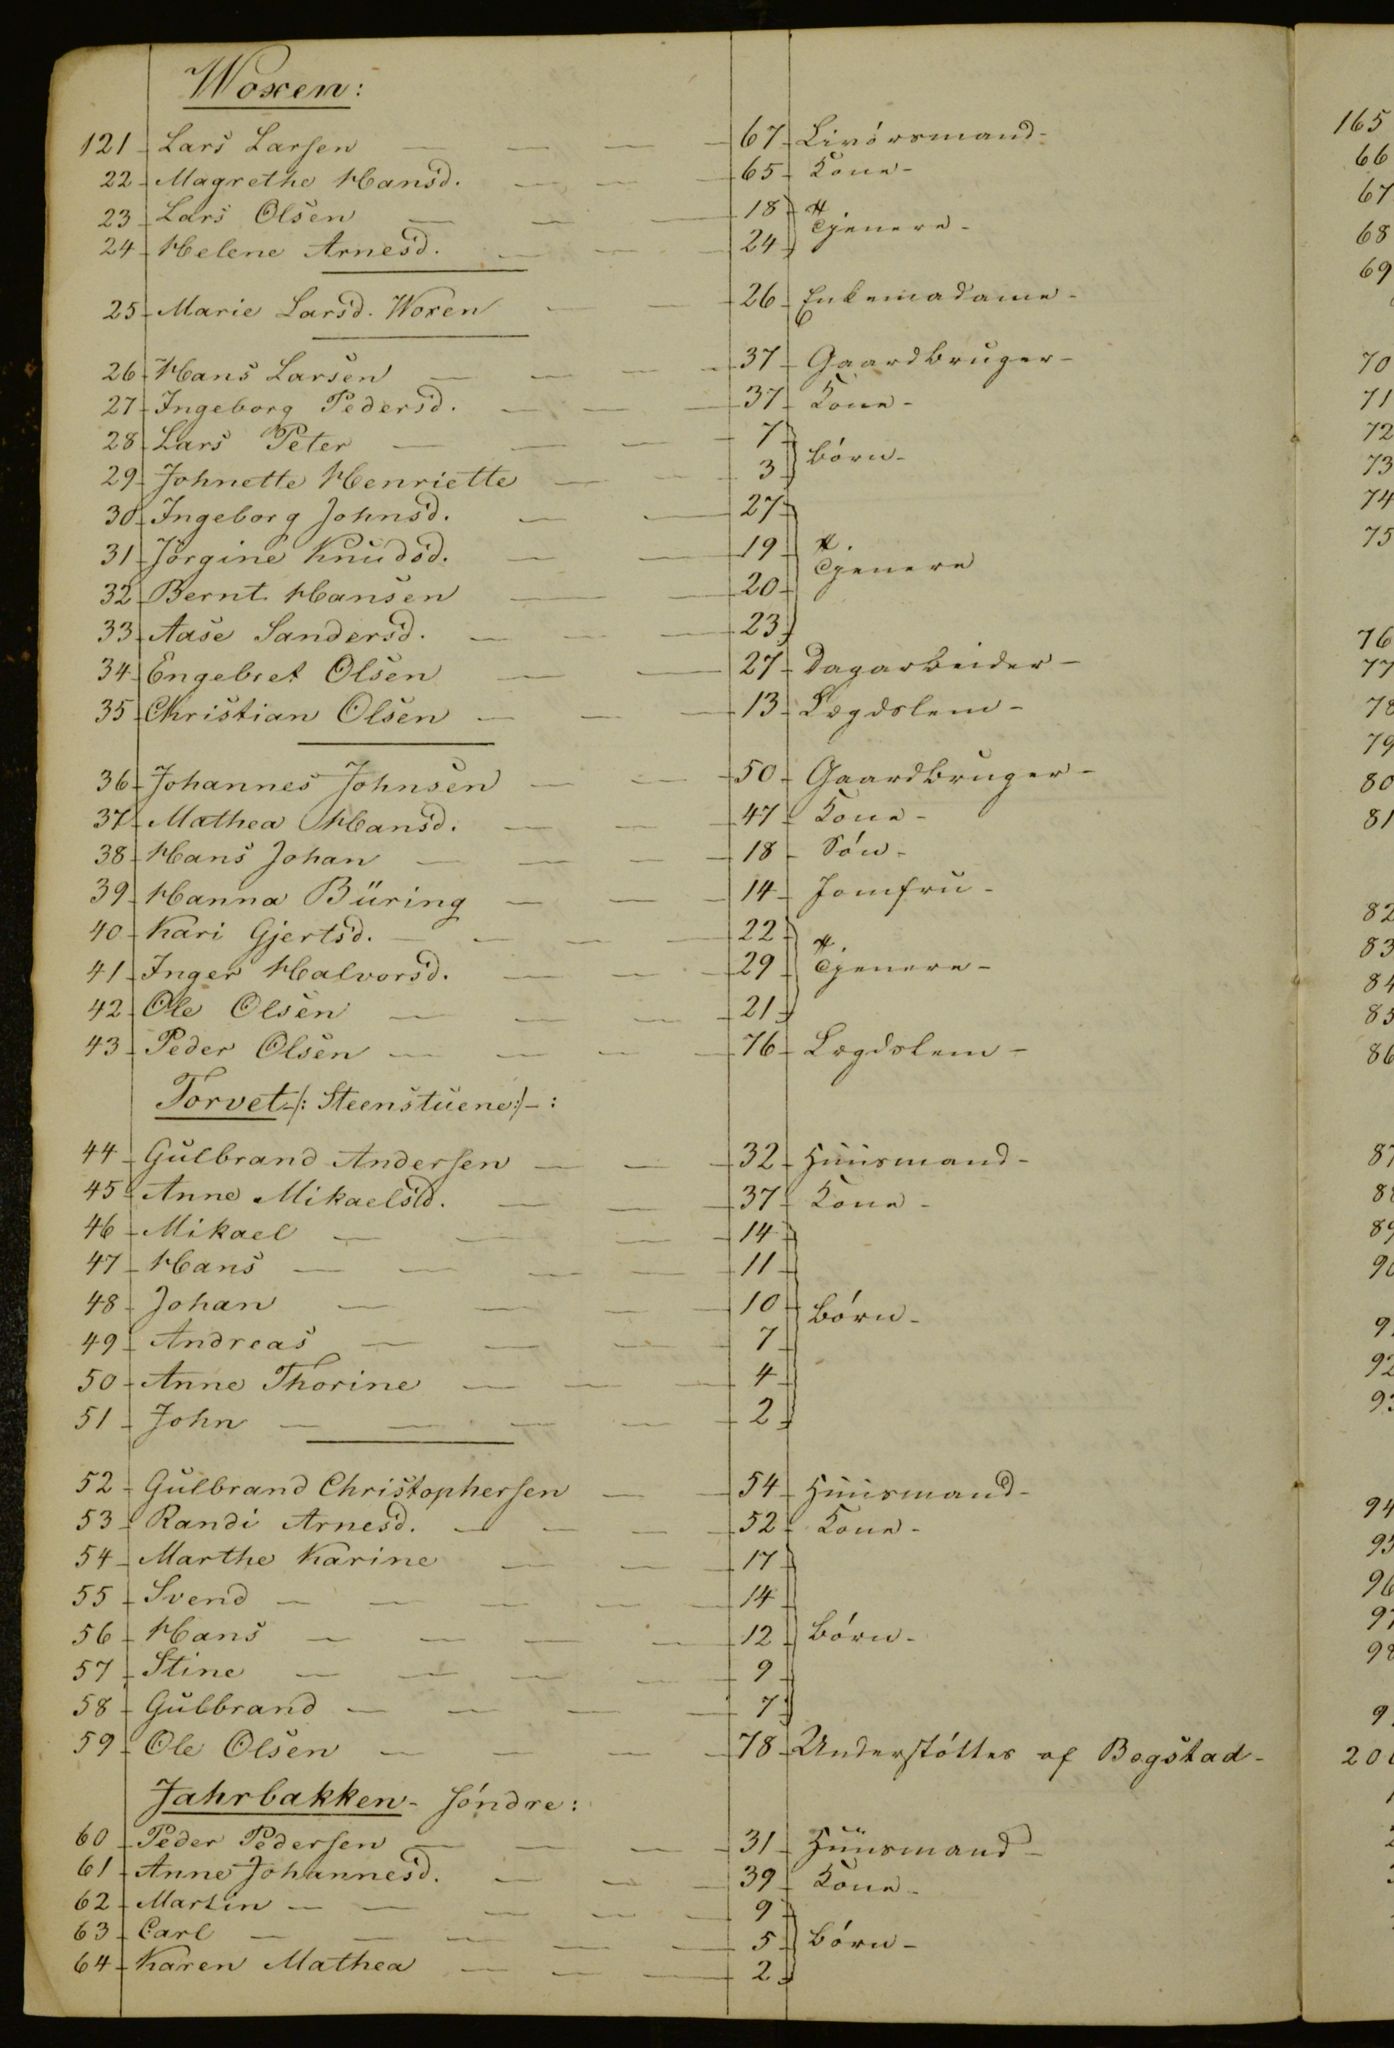 Woxen:
121 Lars Larsen 67 Livörsmand
22 Magrethe Hansd. 65 Kone
23 Lars Olsen 18
24 Helene Arnesd. 24 Tjenere
25 Marie Larsd. Woxen 26 Enkemadame
26 Hans Larsen 37 Gaardbruger
27 Ingeborg Pedersd. 37 Kone
28 Lars Peter 7
29 Johnette Henriette 3 Börn
30 Ingeborg Johnsd. 27
31 Jörgine Knudsd. 19
32 Bernt Hansen 20 Tjenere
33 Aase Sandersd. 23
34 Engebret Olsen 27 Dagarbeider
35 Christian Olsen 13 Lægdslem
36 Johannes Johnsen 50 Gaardbruger
37 Mathea Hansd. 47 Kone
38 Hans Johan 18 Sön
39 Hanna Büring 14 Jomfru
40 Kari Gjertsd. 22
41 Inger Halvorsd. 29 Tjenere
42 Ole Olsen 21
43 Peder Olsen 76 Lægdslem
Torvet /: Steenstuene:/ :
44 Gulbrand Andersen 32 Huusmand
45 Anne Mikaelsd. 37 Kone
46 Mikael 14
47 Hans 11
48 Johan 10 Börn
49 Andreas 7
50 Anne Thorine 4
51 John 2
52 Gulbrand Christophersen 54 Huusmand
53 Randi Arnesd. 52 Kone
54 Marthe Karine 17
55 Svend 14
56 Hans 12 Börn
57 Stine 9
58 Gulbrand 7
59 Ole Olsen 78 Understöttes af Bogstad
Jahrbakken söndre:
60 Peder Pedersen 31 Huusmand
61 Anne Johannesd. 39 Kone
62 Martin 9
63 Carl 5 Börn
64 Karen Mathea 2
165
66
67
68
69
70
71
72
73
74
75
76
77
78
79
80
81
82
83
84
85
86
87
88
89
90
92
94
95
96
97
98